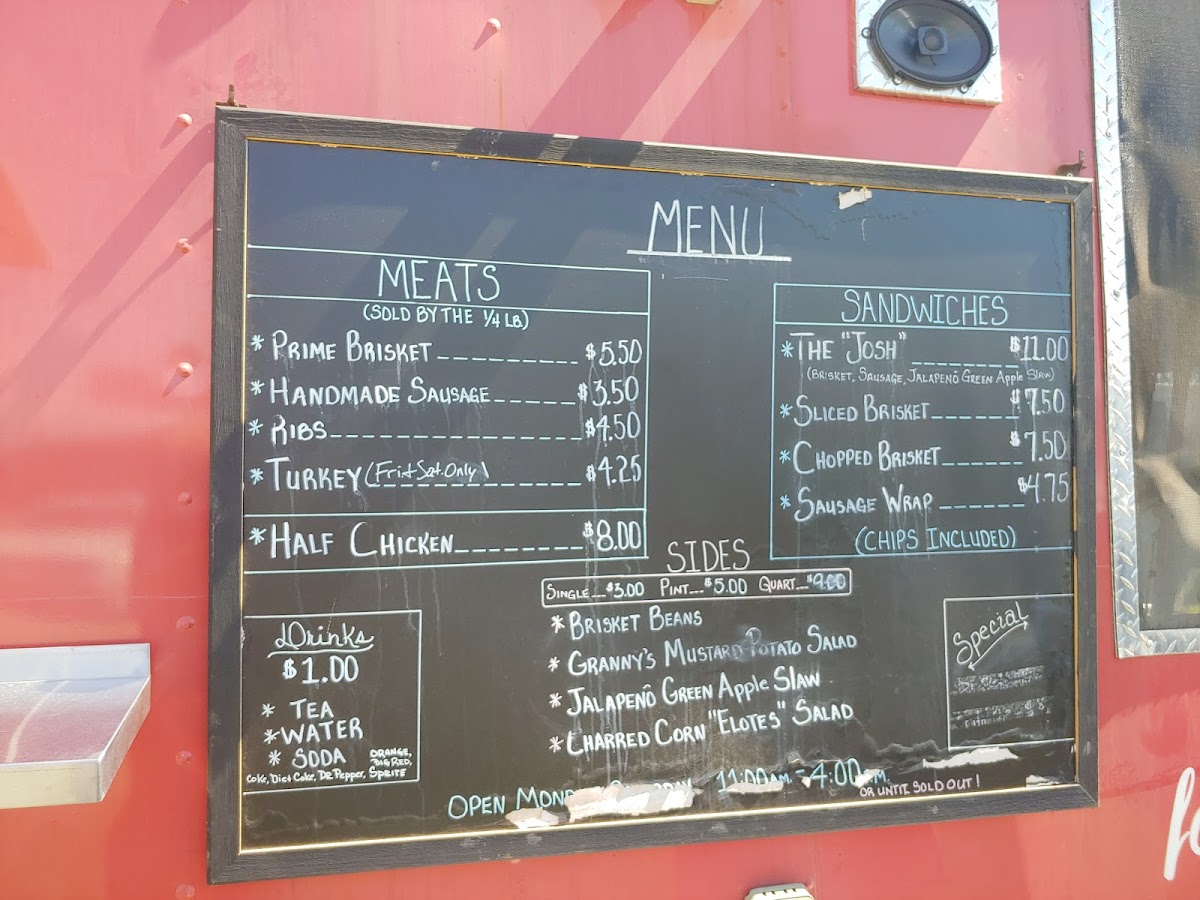 MENU
MEATS
(SOLD BY THE 1/4 LB)
* PRIME BRISKET $5.50
* HANDMADE SAUSAGE $3.50
* RIBS $4.50
* TURKEY (Fri + Sat. Only) $4.25
* HALF CHICKEN $8.00
SANDWICHES
* THE "JOSH" $11.00
(BRISKET, SAUSAGE, JALAPEÑO GREEN Apple Slaw)
* SLICED BRISKET $7.50
* CHOPPED BRISKET $7.50
* SAUSAGE WRAP $4.75
(CHIPS INCLUDED)
SIDES
SINGLE $3.00 PINT $5.00 QUART $9.00
* BRISKET BEANS
* GRANNY'S MUSTARD POTATO SALAD
* JALAPEÑO GREEN APPLE SLAW
* CHARRED CORN "ELOTES" SALAD
Drinks
$1.00
* TEA
* WATER
* SODA
Coke, Diet Coke, Dr Pepper, SPRITE
ORANGE,
BIG RED,
Special
OPEN 11:00AM - 4:00 P.M.
OR UNTIL SOLD OUT!